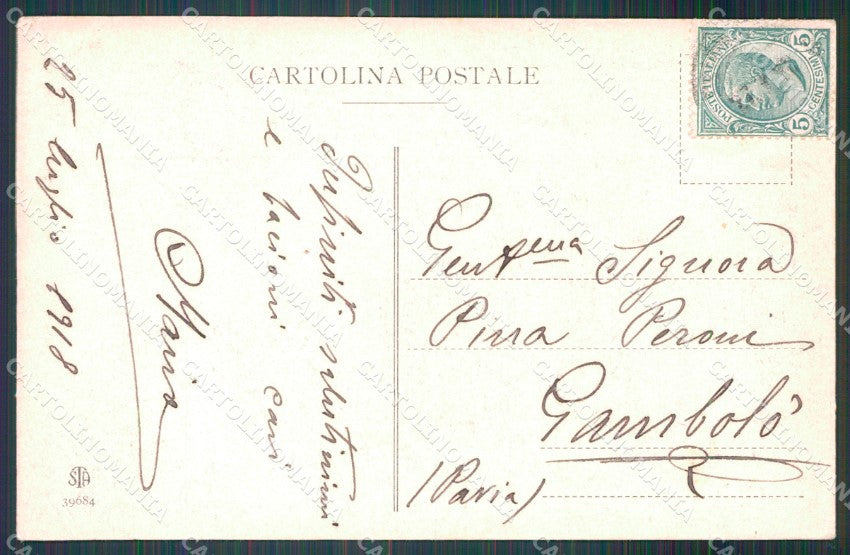 CARTOLINA POSTALE
25 luglio 1918
Infiniti salutissimi
e bacioni cari
Maria
Gent.ma Signora
Pina Peroni
Gambolò
(Pavia)
POSTE ITALIANE
CENTESIMI
5
5
STA
39684
CARTOLINOMANIA